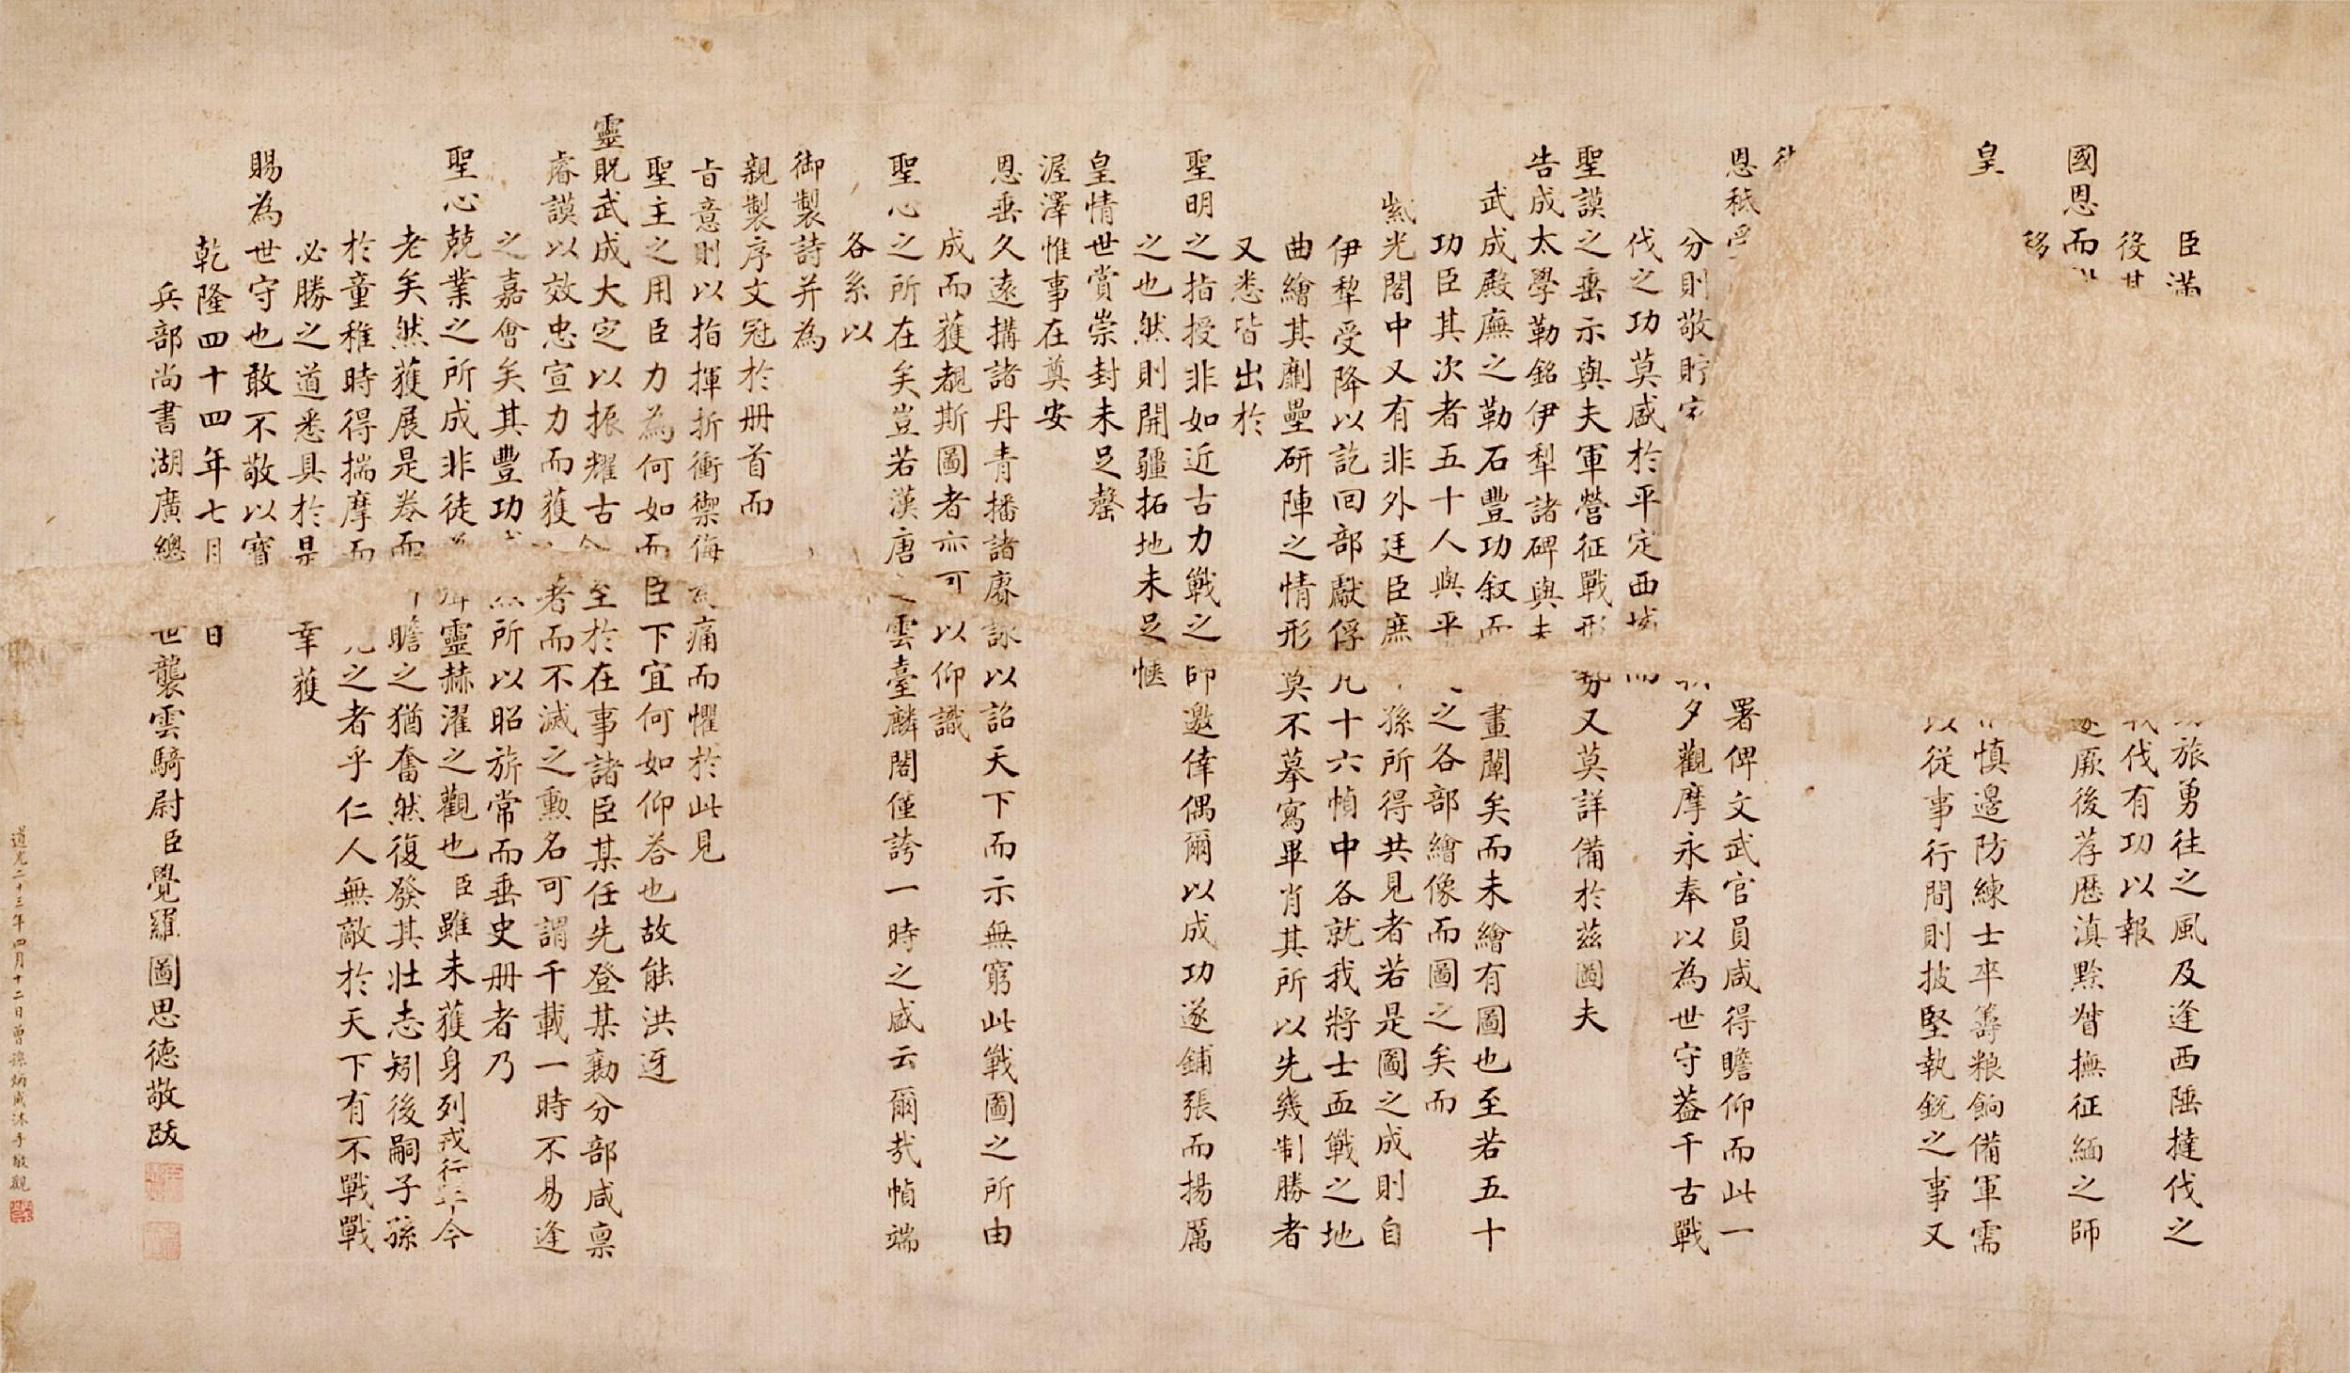 臣滿旅勇往之風及逢西陲撻伐之
役其伐有功以報
國恩而厥後荐歷滇黔督撫征緬之師
移
皇慎邊防練士卒籌粮餉備軍需
以從事行間則披堅執銳之事又
恩祇受署俾文武官員咸得瞻仰而此一
分則敬貯夕觀摩永奉以為世守葢千古戰
伐之功莫盛於平定西域而
聖謨之垂示與夫軍營征戰形勢又莫詳備於茲圖夫
告成太學勒銘伊犁諸碑與夫
武成殿廡之勒石豐功叙而畫闡矣而未繪有圖也至若五十
功臣其次者五十人與平之各部繪像而圖之矣而
紫光閣中又有非外廷臣庶孫所得共見者若是圖之成則自
伊犂受降以訖回部獻俘凡十六幀中各就我將士血戰之地
曲繪其劘壘研陣之情形莫不摹寫畢肖其所以先幾制勝者
又悉皆出於
聖明之指授非如近古力戰之師邀倖偶爾以成功遂鋪張而揚厲
之也然則開疆拓地未足愜
皇情世賞崇封未足罄
渥澤惟事在奠安
恩垂久遠搆諸丹青播諸賡詠以詔天下而示無窮此戰圖之所由
成而獲覩斯圖者亦可以仰識
聖心之所在矣豈若漢唐之雲臺麟閣僅誇一時之盛云爾哉幀端
各系以
御製詩并為
親製序文冠於册首而
旨意則以指揮折衝禦侮為痛而懼於此見
聖主之用臣力為何如而臣下宜何如仰荅也故能洪迓
靈貺武成大定以振耀古今至於在事諸臣某任先登某勷分部咸稟
睿謨以效忠宣力而獲者而不滅之勲名可謂千載一時不易逢
之嘉會矣其豐功所以昭旂常而垂史册者乃
聖心兢業之所成非徒靈赫濯之觀也臣雖未獲身列戎行年今
老矣然獲展是卷而瞻之猶奮然復發其壯志矧後嗣子孫
於童稚時得揣摩而之者乎仁人無敵於天下有不戰戰
必勝之道悉具於是幸獲
賜為世守也敢不敬以寶
乾隆四十四年七月日
兵部尚書湖廣總世襲雲騎尉臣覺羅圖思德敬跋
道光二十三年四月十二日曾孫炳成沐手敬觀